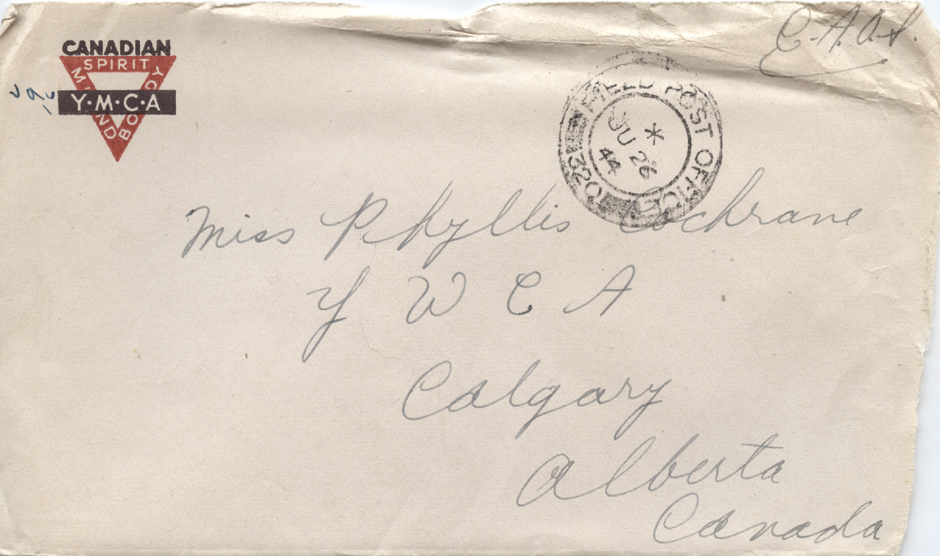 C.A.O.S.
CANADIAN
SPIRIT
MIND
BODY
Y·M·C·A
FIELD POST OFFICE
*
JU 26
44
Miss Phyllis Cochrane
Y W C A
Calgary
Alberta
Canada